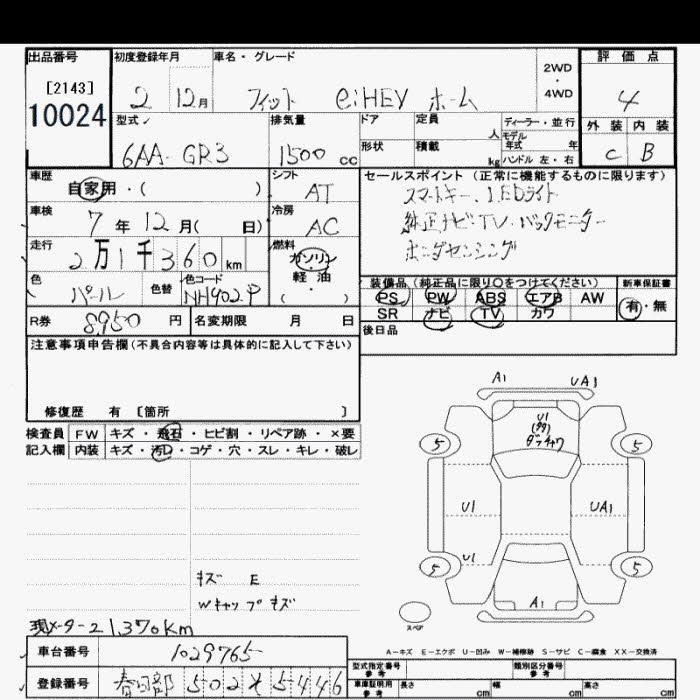 出品番号 初度登録年月 車名・グレード 2WD ・ 4WD 評価点
[2143]
10024 2 12月 フィット e:HEV ホーム 4
型式 排気量 ドア 定員 人 ディーラー・並行 外装 内装
モデル年式 年
6AA-GR3 1500cc 形状 積載 kg ハンドル 左・右 C B
車歴 シフト セールスポイント (正常に機能するものに限ります)
自家用・( ) AT スマートキー、LEDライト
車検 冷房 純正ナビ・TV・バックモニター
7年12月( 日) AC ホンダセンシング
走行 燃料
2万1千360km ガソリン
色 色替 色コード 軽・油 装備品 (純正品に限り○をつけてください) 新車保証書
パール NH902P ( ) PS PW ABS エアB AW 有・無
SR ナビ TV カワ
R券 8950円 名変期限 月 日 後日品
注意事項申告欄 (不具合内容等は具体的に記入して下さい)
修復歴 有 〔箇所 〕
検査員 FW キズ・飛石・ヒビ割・リペア跡・×要
記入欄 内装 キズ・汚れ・コゲ・穴・スレ・キレ・破レ
A1 UA1
U1
(多数)
ダッチャク
5 5
U1 UA1
U1
5 5
A1
スペア
キズ E
Wキャップキズ
現メーター21370km
A-キズ E-エクボ U-凹み W-補修跡 S-サビ C-腐食 XX-交換済
車台番号 1029765
登録番号 春日部502そ5446
型式指定番号 参考 類別区分番号 参考
車庫証明用 参考 長さ cm 幅 cm 高さ cm